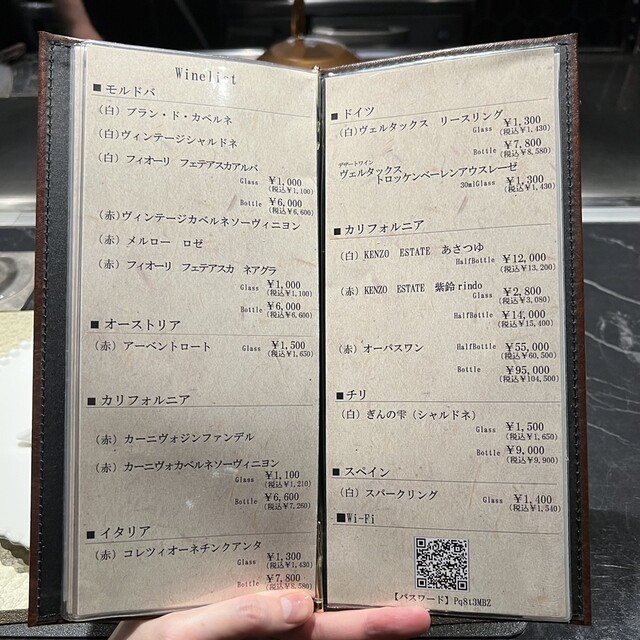 Winelist
■ モルドバ
（白）ブラン・ド・カベルネ
（白）ヴィンテージシャルドネ
（白）フィオーリ　フェテアスカアルバ
Glass ￥1,000
(税込￥1,100)
Bottle ￥6,000
(税込￥6,600)
（赤）ヴィンテージカベルネソーヴィニヨン
（赤）メルロー　ロゼ
（赤）フィオーリ　フェテアスカ　ネアグラ
Glass ￥1,000
(税込￥1,100)
Bottle ￥6,000
(税込￥6,600)
■ オーストリア
（赤）アーベントロート Glass ￥1,500
(税込￥1,650)
■ カリフォルニア
（赤）カーニヴォジンファンデル
（赤）カーニヴォカベルネソーヴィニヨン
Glass ￥1,100
(税込￥1,210)
Bottle ￥6,600
(税込￥7,260)
■ イタリア
（赤）コレツィオーネチンクアンタ
Glass ￥1,300
(税込￥1,430)
Bottle ￥7,800
(税込￥8,580)
■ ドイツ
（白）ヴェルタックス　リースリング
Glass ￥1,300
(税込￥1,430)
Bottle ￥7,800
(税込￥8,580)
デザートワイン
ヴェルタックス
トロッケンベーレンアウスレーゼ
30mlGlass ￥1,300
(税込￥1,430)
■ カリフォルニア
（白）KENZO ESTATE あさつゆ
HalfBottle ￥12,000
(税込￥13,200)
（赤）KENZO ESTATE 紫鈴rindo
Glass ￥2,800
(税込￥3,080)
HalfBottle ￥14,000
(税込￥15,400)
（赤）オーパスワン HalfBottle ￥55,000
(税込￥60,500)
Bottle ￥95,000
(税込￥104,500)
■ チリ
（白）ぎんの雫（シャルドネ）
Glass ￥1,500
(税込￥1,650)
Bottle ￥9,000
(税込￥9,900)
■ スペイン
（白）スパークリング Glass ￥1,400
(税込￥1,540)
■Wi-Fi
【パスワード】Pq8t3MBZ